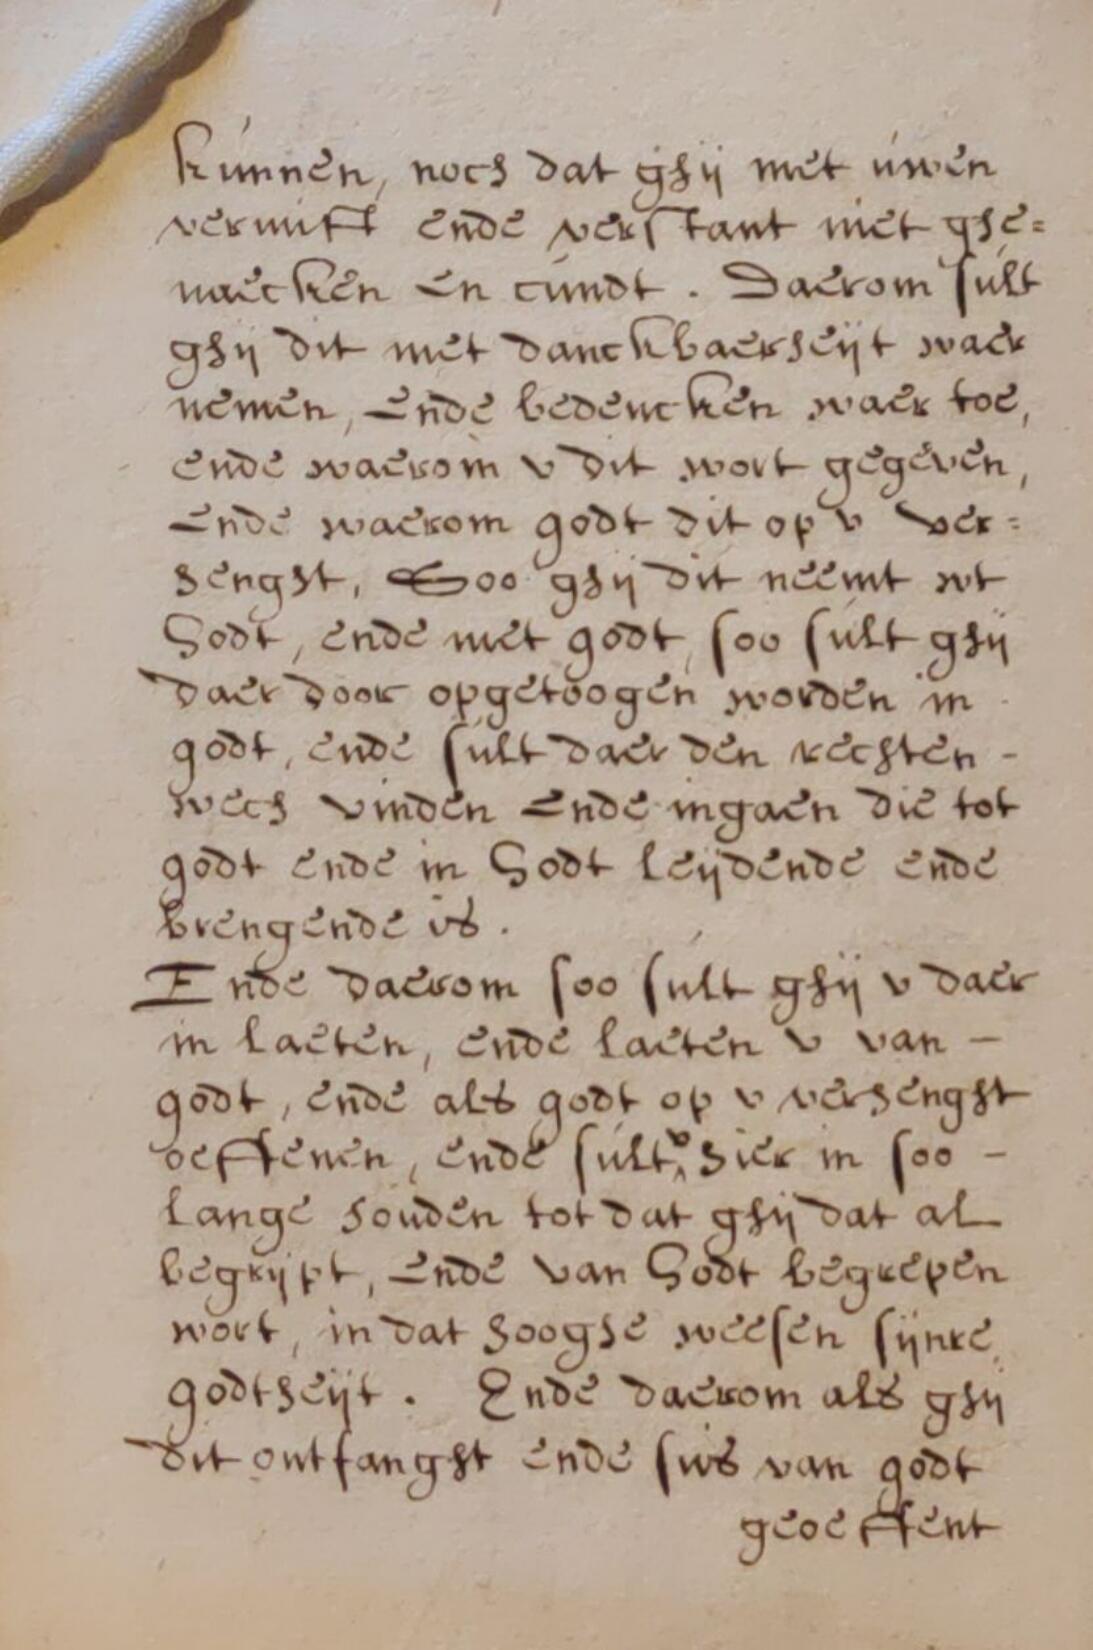 kunnen, noch dat ghij met uwen
vernuft ende verstant niet ghe=
naecken en cundt. Daerom sult
ghij dit met danckbaerheijt waer
nemen, Ende bedencken waer toe,
ende waerom v dit wort gegeven,
Ende waerom godt dit op v ver=
henght, Soo ghij dit neemt wt
Godt, ende met godt, soo sult ghij
daer door opgetoogen worden in
godt, ende sult daer den rechten -
wech vinden Ende ingaen die tot
godt ende in Godt leijdende ende
brengende is.
Ende daerom soo sult ghij v daer
in laeten, ende laeten v van -
godt, ende als godt op v verhenght
oeffenen, ende sult v hier in soo -
lange houden tot dat ghij dat al
begrijpt, Ende van Godt begrepen
wort, in dat hooghe weesen sijnre
godtheijt. Ende daerom als ghij
dit ontfanght ende sus van godt
geoeffent